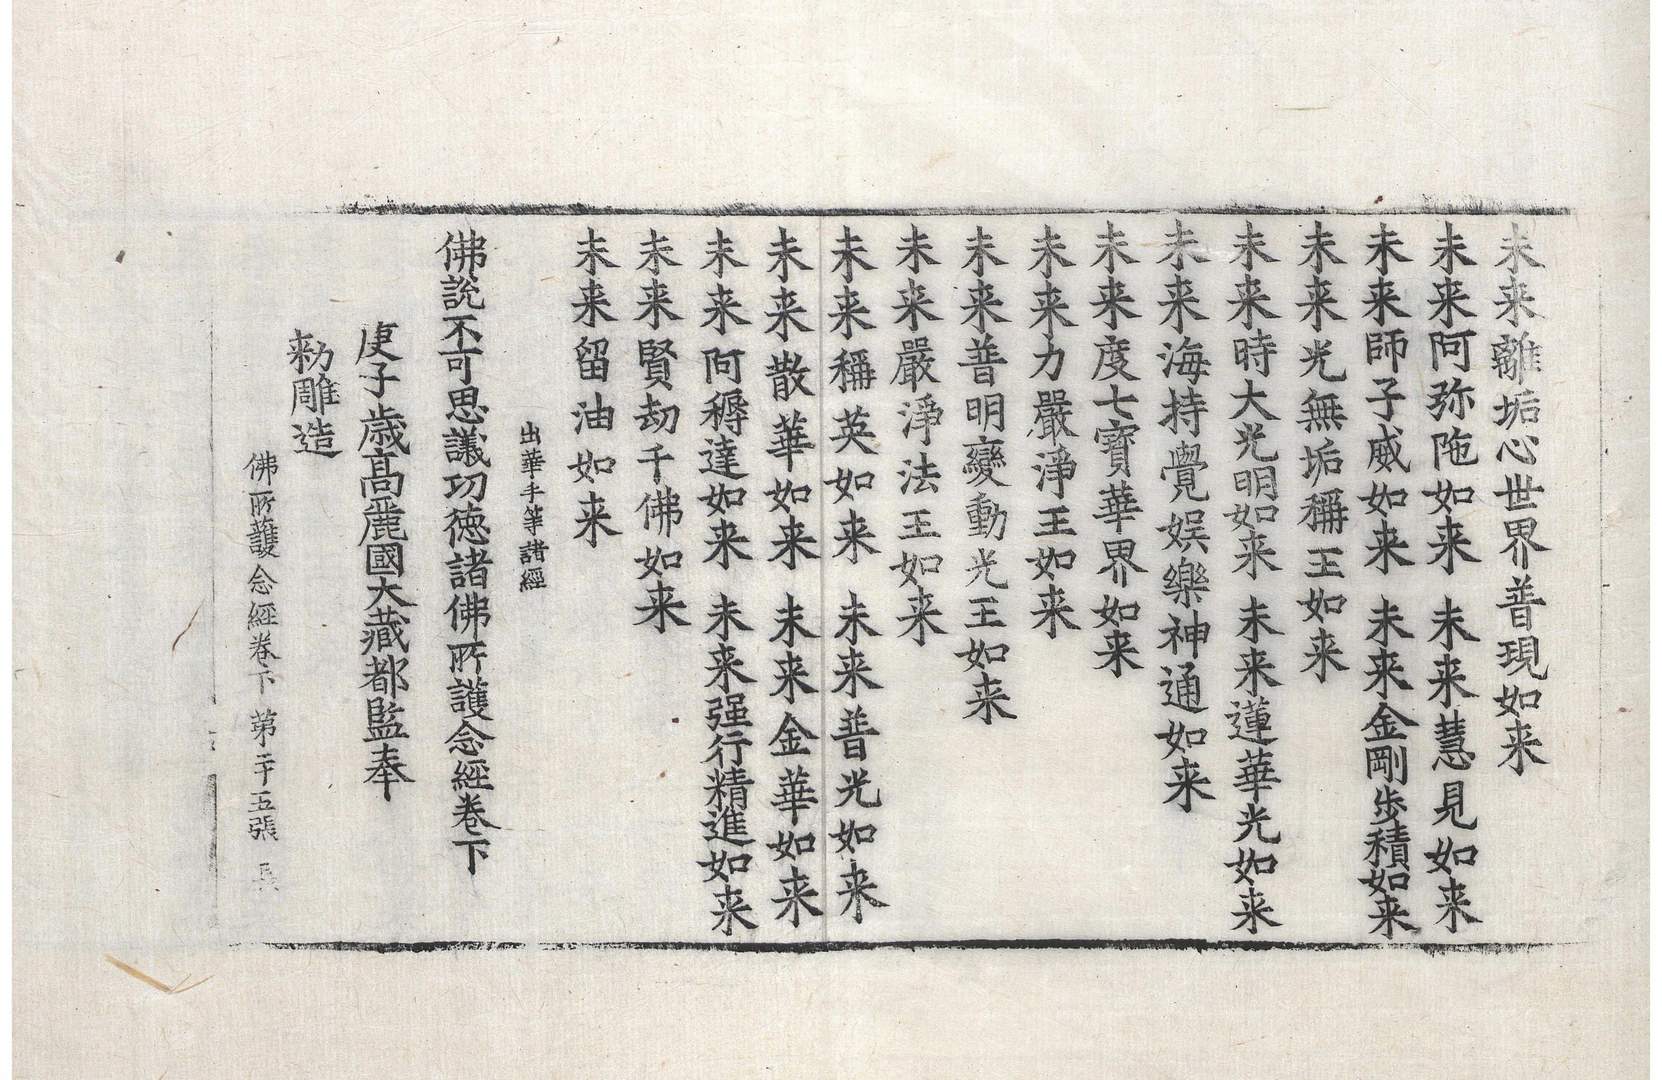 未来離垢心世界普現如来
未来阿弥陁如来 未来慧見如来
未来師子威如来 未来金剛步積如来
未来光無垢稱王如来
未来時大光明如来 未来蓮華光如来
未来海持覺娯樂神通如来
未来度七寳華界如来
未来力嚴淨王如来
未来普明變動光王如来
未来嚴淨法王如来
未来稱英如来 未来普光如来
未来散華如来 未来金華如来
未来阿耨達如来 未来强行精進如来
未来賢劫千佛如来
未来留油如来
出華手等諸經
佛說不可思議功德諸佛所護念經卷下
庚子歳高麗國大藏都監奉
勑雕造
佛所護念經卷下 苐二十五張 長